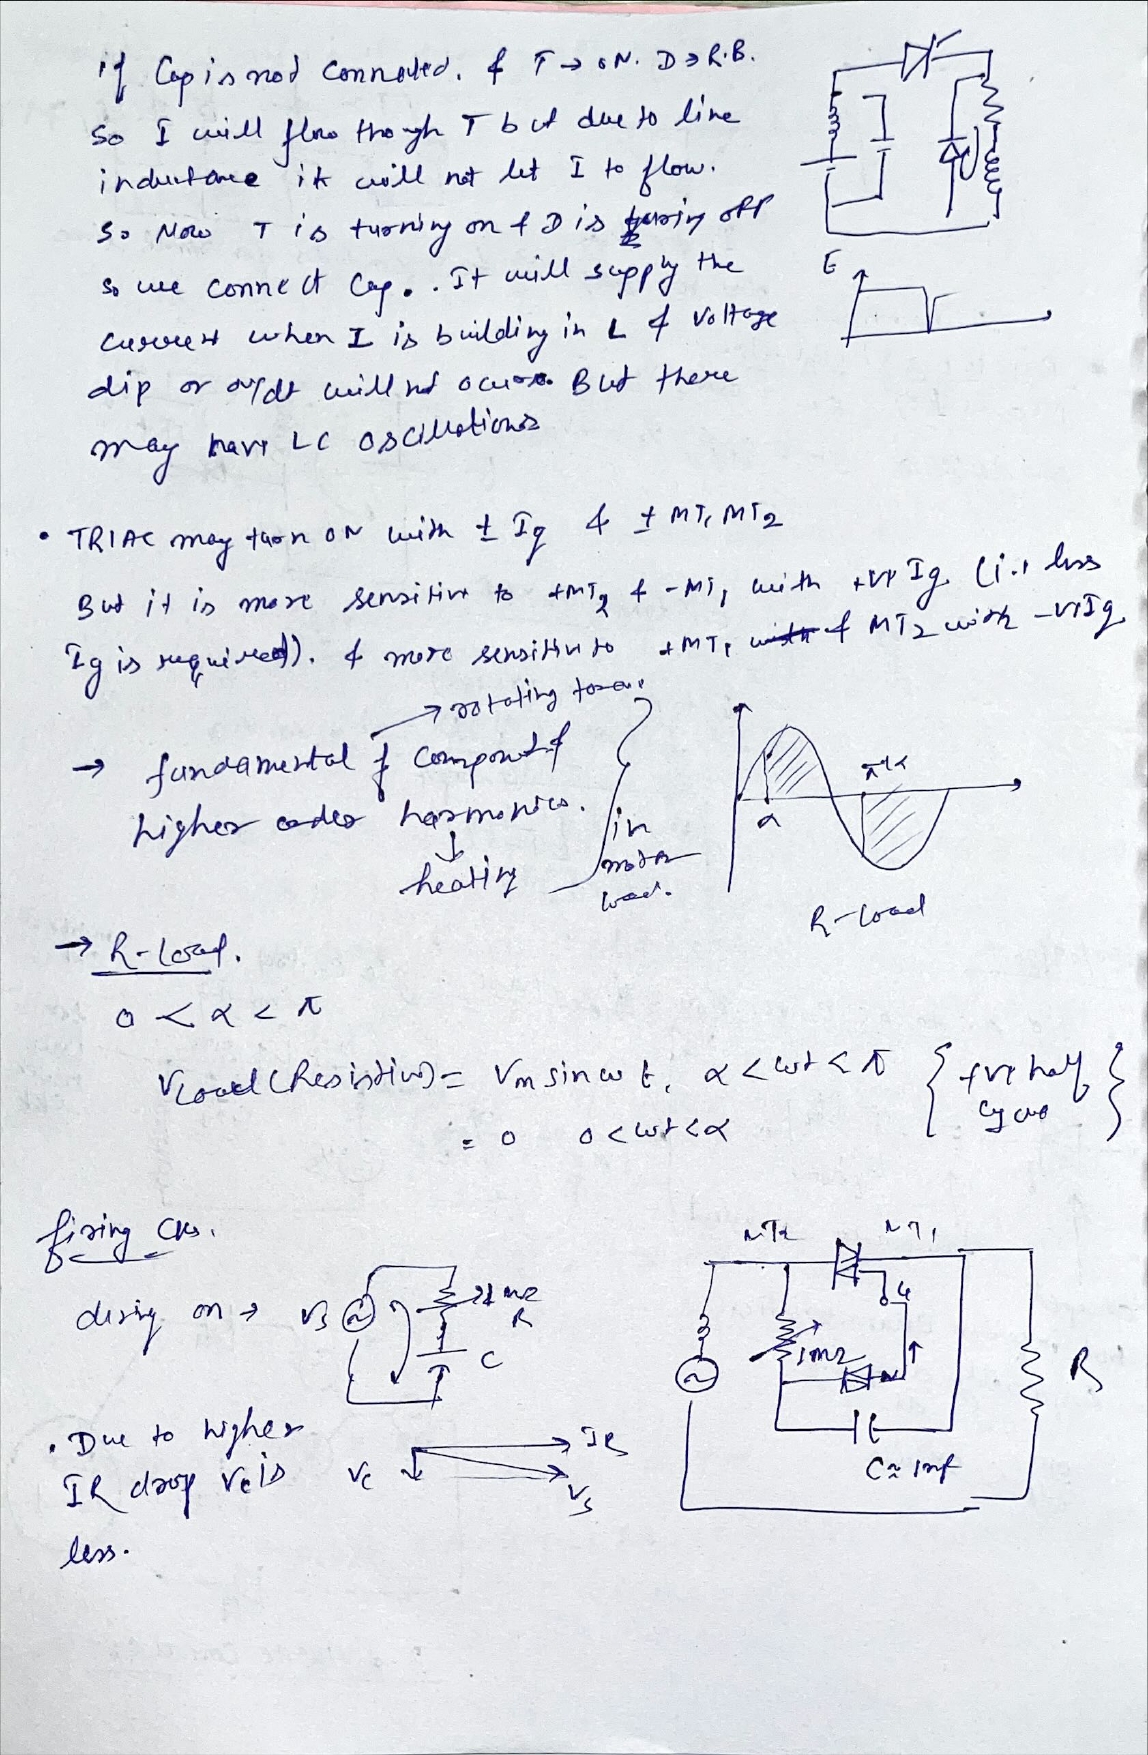 if Cap is not connected. & T → ON. D → R.B.
So I will flow though T but due to line
inductance it will not let I to flow.
So Now T is turning on & D is turin off
so we connect Cap.. It will supply the
current when I is building in L & voltage
dip or dv/dt will not ocurs. But there
may have LC oscillations
E
• TRIAC may turn ON with ± Ig & ± MT1 MT2
But it is more sensitive to +MT2 & -MT1 with +ve Ig (i.e less
Ig is required). & more sensitive to +MT1 & MT2 with -ve Ig
→ rotating
→ fundamental f component &
higher order harmonics.
↓
heating
in
motor
load.
α
π+α
R-load
→ R-load.
0 < α < π
VLoad (Resistive) = Vm sin ωt, α < ωt < π { +ve half cycle }
= 0 0 < ωt < α
firing Cks.
during on → Vs
1 MΩ
R
C
• Due to higher
IR drop Vc is
less.
Vc
IR
Vs
MT2 MT1
G
1MΩ
R
C ≈ 1mf